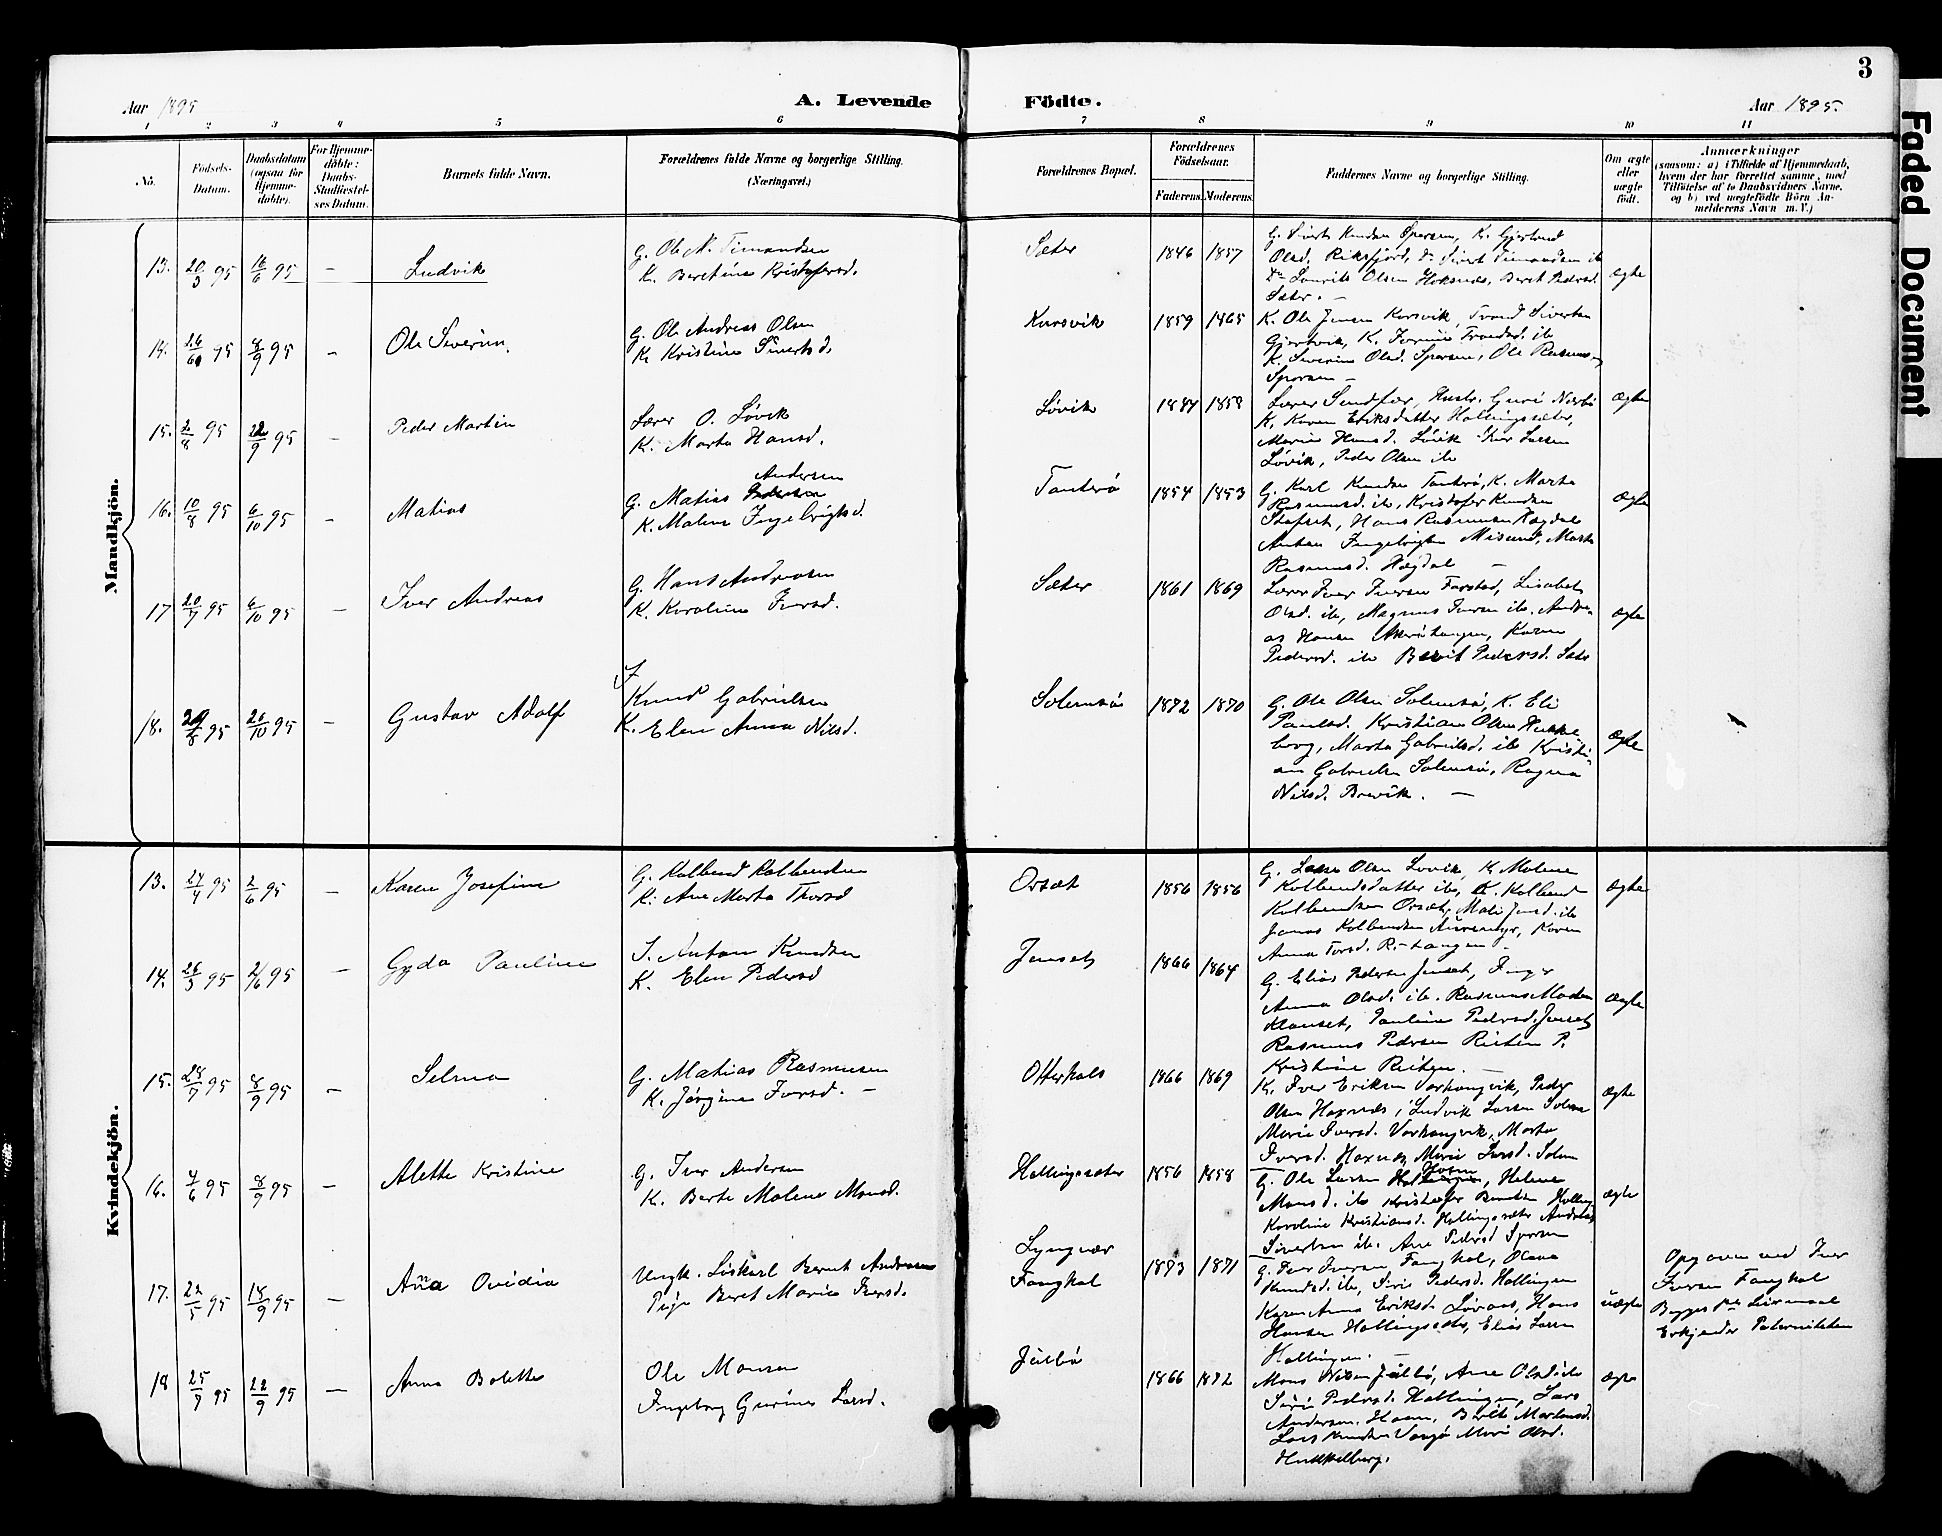 3
Aar 1895
A. Levende
Födte.
Aar 1895.
1 2 3 4 5 6 7 8 9 10 11
No.
Födsels-
Datum.
Daabsdatum
(ogsaa for
Hjemme-
döbte).
For Hjemme-
döbte:
Daabs-
Stadfæstel-
ses Datum.
Barnets fulde Navn.
Forældrenes fulde Navne og borgerlige Stilling.
(Næringsvei.)
Forældrenes Bopæl.
Forældrenes
Födselsaar.
Faderens. Moderens.
Faddernes Navne og borgerlige Stilling.
Om ægte
eller
uægte
födt.
Anmærkninger
(saasom: a) i Tilfælde af Hjemmedaab,
hvem der har forrettet samme, med
Tilföielse af to Daabsvidners Navne,
og b) ved uægtefödte Börn An-
melderens Navn m. V.)
Mandkjön.
13. 20/3 95 16/6 95 — Ludvik
G. Ole N. Timandsen
K. Beretine Kristofersd.
Sæter 1846 1857
G. Sivert Knudsen Sporsem, K. Gjertrud
Olsd. Riksfjord, Do Sivert Timandsen ib
Do Lauritz Olsen Hoksnes, Beret Pedersd.
Sæter. —
ægte
14. 26/6 95 8/9 95 — Ole Severin.
G. Ole Andreas Olsen
K. Kristine Sivertsd.
Korsvik 1859 1865
K. Ole Jensen Korsvik, Trond Sivertsen
Gjertvik, K. Jornine Trondsd. ib
K. Severine Olsd. Sporsem, Ole Rasmus-
Sporsem —
Ægte
15. 2/8 95 22/9 95 — Peder Martin
Lærer O. Løvik
K. Marta Hansd.
Løvik 1844 1858
Lærer Sundfær, Hustr. Guri Nesbø
K. Karen Eriksdatter Hallingsæter,
Marie Hansd. Løvik Iver Larsen
Løvik, Peder Olsen ib
16. 10/8 95 6/10 95 — Matias
Andersen
G. Matias
K. Malene Ingebrigtsd.
Tauterø 1854 1853
G. Karl Knudsen Tauterø, K. Marta
Rasmusd. ib, Kristofer Knudsen
Stafset, Hans Rasmusen Hægdal
Anton Ingebrigtsen Misund, Marta
Rasmusd. Hægdal —
Ægte
17 20/7 95 6/10 95 — Iver Andreas
G. Hans Andreasen
K. Karoline Iversd.
Sæter 1861 1869
Lærer Iver Iversen Farstad, Lisabet
Olsd. ib, Magnus Iversen ib. Andre-
as Hansen, Karen
Pedersd. ib Berit Pedersd. Sæter
ægte
18. 29/8 95 20/10 95 — Gustav Adolf
I
Knud Gabrielsen
K. Elen Anna Nilsd.
Solemsø 1872 1870
G. Ole Olsen Solemsø, K. Eli
Paulsd. Kristian Olsen Hukkel-
berg, Marta Gabrielsd. ib Kristi-
an Gabrielsen Solemsø, Ragna
Nilsd. Brevik. —
Ægte
Kvindekjön.
13. 24/4 95 2/6 95 — Karen Josefine
G. Kolbend Kolbendsen
K. Ane Marta Thorsd
Orsæt 1856 1856
G. Lasse Olsen Lovik, K Malene
Kolbendsdatter ib, K. Kolbend
Kolbendsen Orsæt, Mali Jensd. ib
Jonas Kolbendsen Aurenmyr, Karen
Anna Torsd. Røshaugen —
ægte
14. 26/3 95 2/6 95 — Gyda Pauline
I. Anton Knudsen
K. Elen Pedersd
Jenset 1866 1864
G. Elias Pedersen Jenset, Inger
Anna Olsd. ib. Rasmus Madsen
Klauset, Pauline Pedersd. Jenset
Rasmus Pedersen Rieten P.
Kristine Rieten. —
ægte
15. 28/7 95 8/9 95 — Selma
G. Matias Rasmusen
K. Jørgine Iversd. —
Otterhals 1866 1869
K. Iver Eriksen Varhaugvik, Peder
Olsen Haxnæs, Ludvik Larsen Solem
Marie Iversd. Varhaugvik, Marta
Iversd. Haxnæs, Marie Larsd. Solem
ægte
16. 4/6 95 8/9 95 — Alette Kristine
G. Iver Andersen
K. Berte Malene Monsd.
Hallingsæter 1856 1858
Hoem
G. Ole Larsen, Helene
Monsd. ib Kristofer Bendtsen Halling
Karoline Kristiansd. Hallingsæter Andreas
Sivertsen ib. Ane Pedersd Sporsem
ægte
17. 22/5 95 18/9 95 — Anna Ovidia
Ungk. Fiskerl. Bernt Andreasen
Pige Beret Marie Iversd.
Lyngvær
Fanghol
1873 1871
G. Peder Iversen Fanghol, Olava
Knudsd. ib, Siri Pedersd. Hallingen
Karen Anna Eriksd. Løvaas, Hans
Hansen Hallingsæter, Elias Larsen
Hallingen. —
uægte
Opgaven ved Iver
Iversen Fanghol
Begges 1ste Leiermaal
Erkjender Paterniteten
18 25/7 95 22/9 95 — Anna Bolette
Ole Monsen
Ingeborg Gurine Larsd.
Julbø 1866 1872
Mons Nilsen Julbø, Ane Olsd. ib
Siri Pedersd. Hallingen, Lars
Andersen Hoem, Berit Mortensd.
Lars Knudsen Vaagø Mari Olsd.
Hukkelberg.
ægte
Faded Document